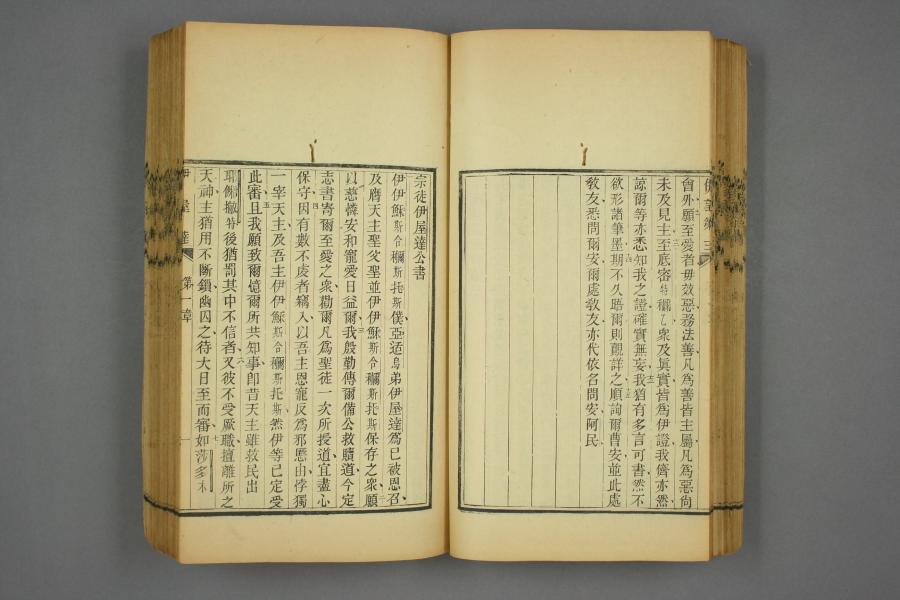 會外願至愛者毋效惡務法善凡爲善皆主屬凡爲惡尙
未及見主至底密特穪乙衆及眞實皆爲伊證我儕亦然
諒爾等亦悉知我之證確實無妄我猶有多言可書然不
欲形諸筆墨期不久晤爾則覿詳之順詢爾曹安並此處
敎友悉問爾安爾處敎友亦代依名問安阿民
宗徒伊屋達公書
伊伊穌斯合穪斯托斯僕亞适烏弟伊屋達爲已被恩召
及膺天主聖父並伊伊穌斯合穪斯托斯保存之衆願
以慈憐安和寵愛日益爾我殷勤傳爾備公救贖道今定
志書寄爾至愛之衆勸爾凡爲聖徒一次所授道宜盡心
保守因有數不虔者竊入以吾主恩寵反爲邪慝由悖獨
一宰天主及吾主伊伊穌斯合穪斯托斯然伊等已定受
此審且我願致爾億爾所共知事卽昔天主雖救民出
耶餙撤特後猶罰其中不信者又彼不受厥職擅離所之
天神主猶用不斷鎖幽囚之待大日至而審如莎多木
伊屋達 第一章 一